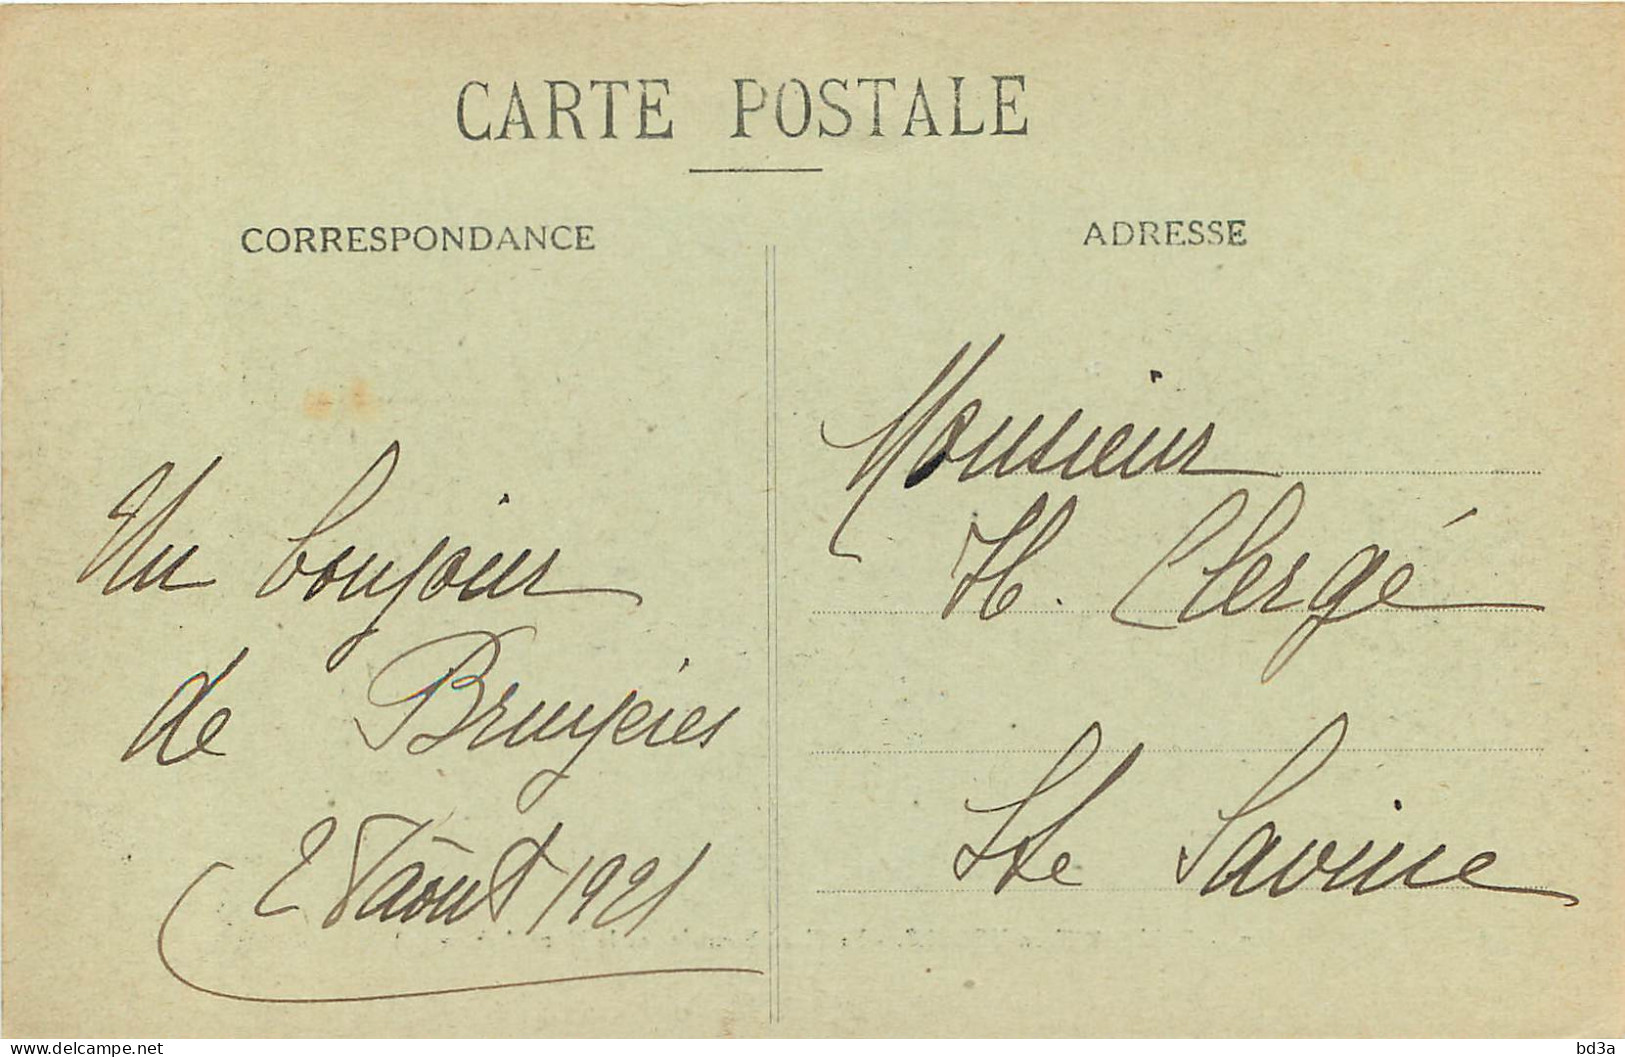 CARTE POSTALE
CORRESPONDANCE
Un bonjour
de Bruyères
28 août 1921
ADRESSE
Monsieur
H. Clergé
Ste Savine
www.delcampe.net
bd3a